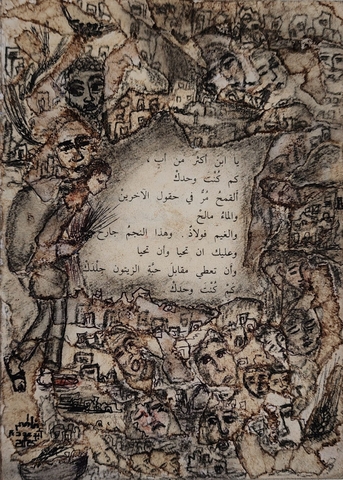 يا ابنَ أكثرَ من أبٍ ،
كم كُنْتَ وحدكْ
ألقمحُ مُرٌّ في حقول الآخرينْ
والماءُ مالحْ
والغيم فولاذٌ . وهذا النجمُ جارحْ
وعليك ان تحيا وأن تحيا
وأن تعطي مقابلَ حبّةِ الزيتون جلْدَكْ
كَمْ كُنْتَ وحدَكْ